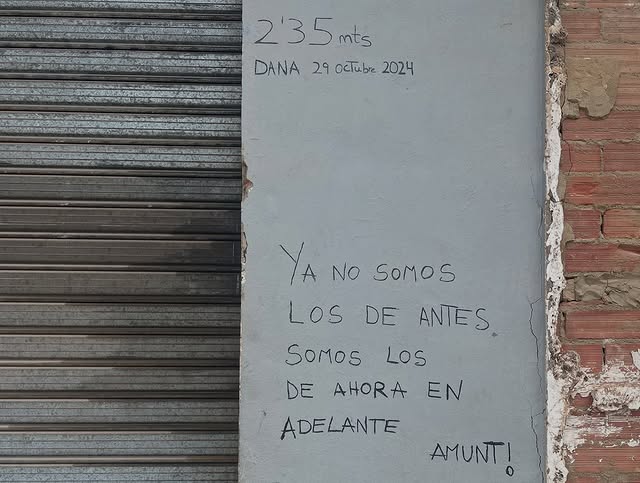 2'35 mts
DANA 29 octubre 2024
YA NO SOMOS
LOS DE ANTES.
SOMOS LOS
DE AHORA EN
ADELANTE
AMUNT!